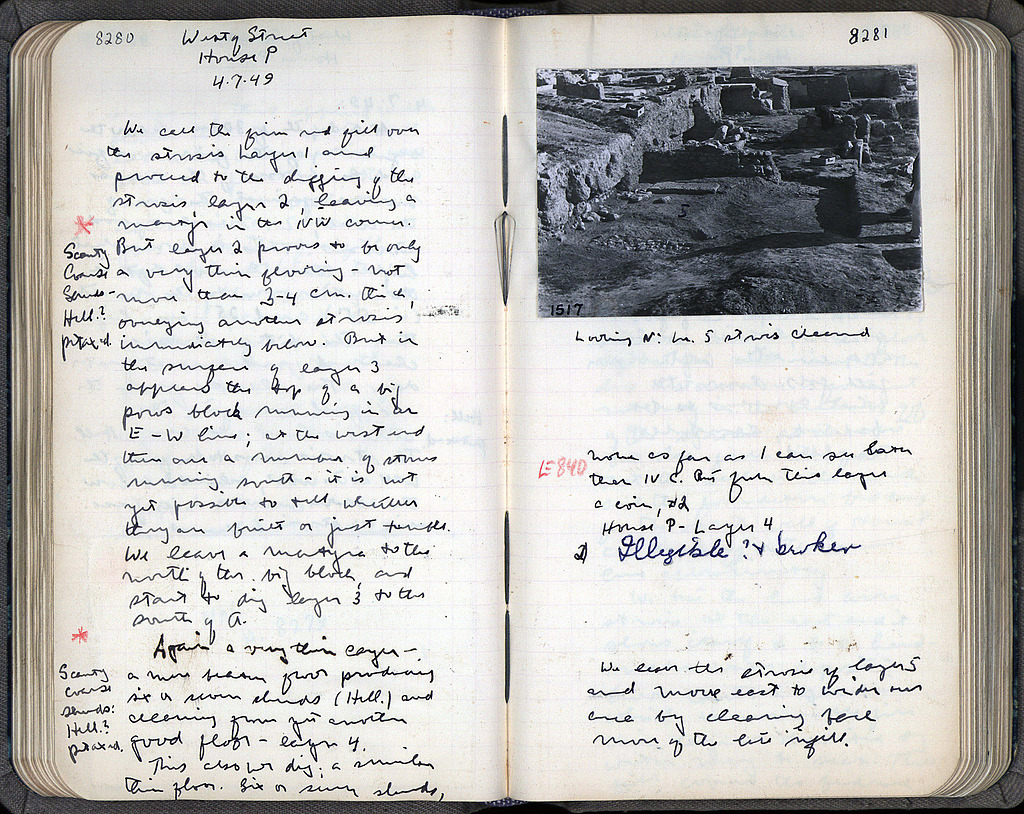 8280
West of Street
House P
4.7.49
We call the firm red fill over
the strosis Layer 1 and
proceed to the digging of the
strosis, layer 2, leaving a
martyr in the NW corner.
But layer 2 proves to be only
a very thin flooring - not
more than 3-4 cm. thick,
overlying another strosis
immediately below. But in
the surface of layer 3
appears the top of a big
poros block running in an
E-W line; at the west end
there are a number of stones
running south - it is not
yet possible to tell whether
they are built or just tumble.
We leave a martyra to the
north of this big block, and
start to dig layer 3 to the
south of it.
Again a very thin layer -
a mere beaten floor producing
six or seven sherds (Hell.) and
cleaning from yet another
good floor - layer 4.
This also we dig; a similar
thin floor. Six or seven sherds,
*
Scanty
Coarse
Sherds -
Hell.?
pitaxed.
*
Scanty
coarse
sherds:
Hell.?
pitaxed.
8281
1517
5
Looking N: La. 5 strosis cleared
none as far as I can see later
than IV C. But from this layer
a coin, #2
House P - Layer 4
2) Illegible? & broken
ΙΕ 840
We leave the strosis of layer 5
and move east to widen our
area by clearing back
more of the late infill.